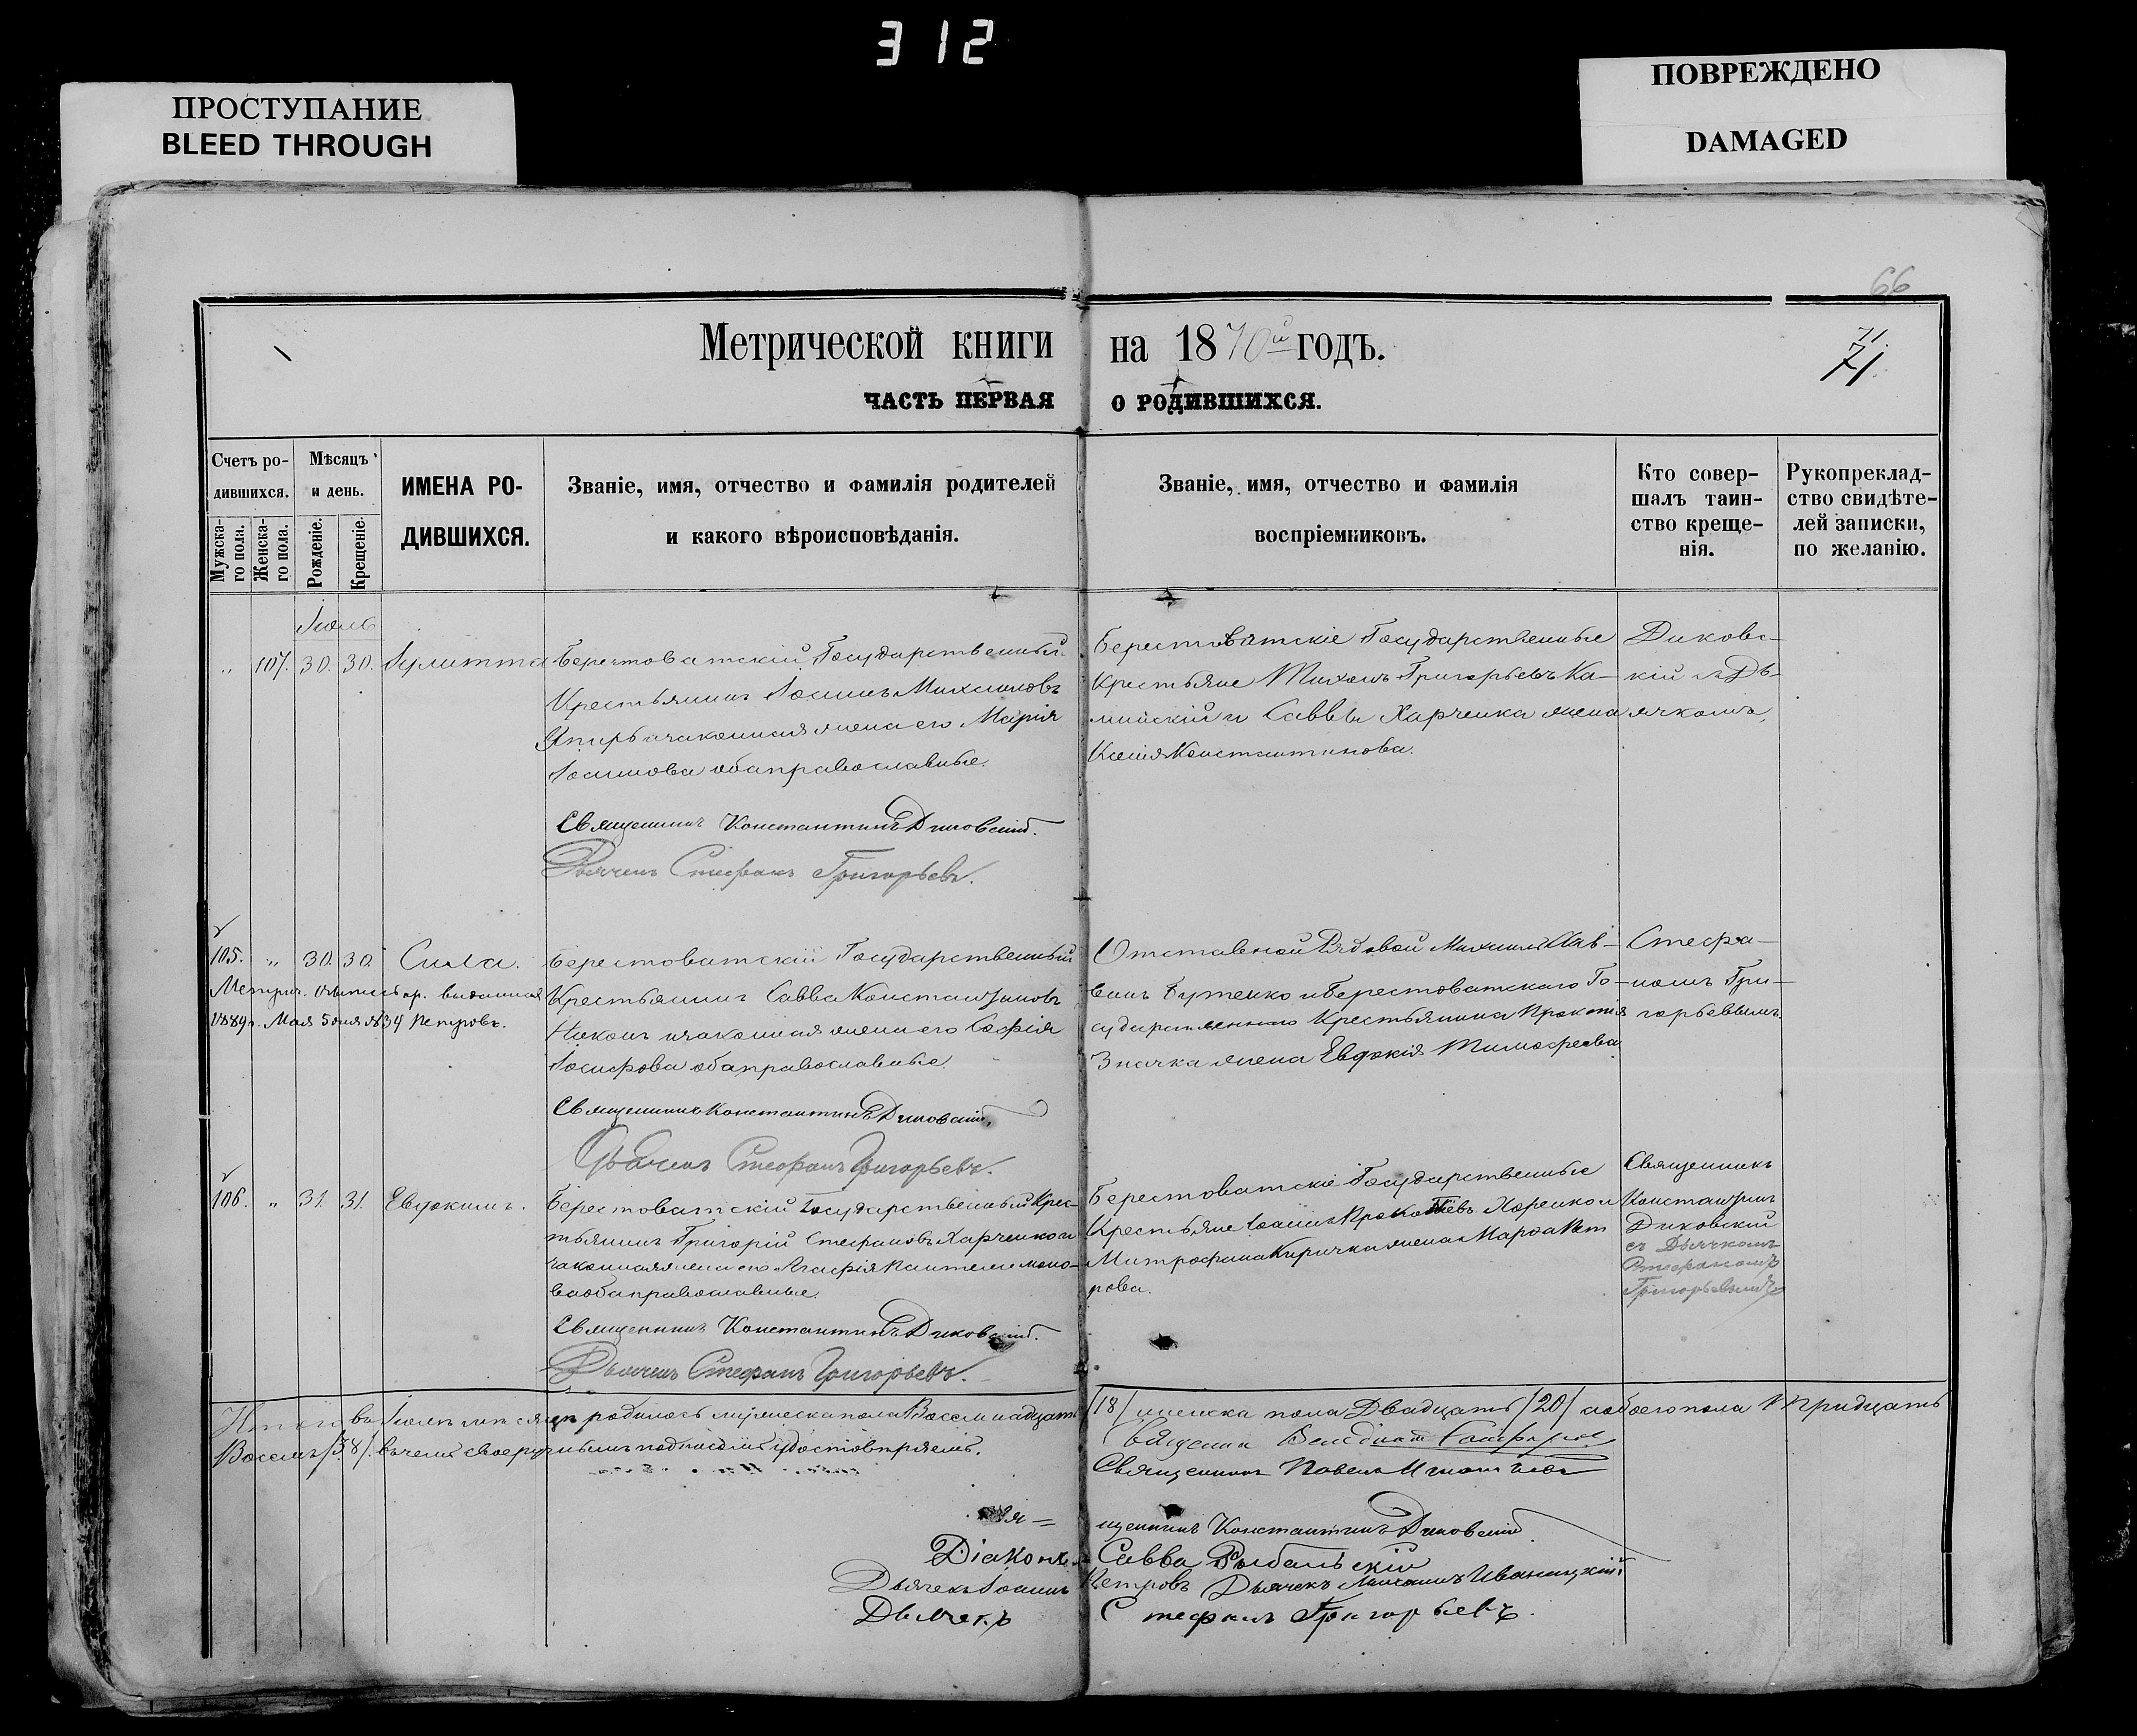 312
ПРОСТУПАНИЕ
BLEED THROUGH
ПОВРЕЖДЕНО
DAMAGED
66
Метрической книги на 1870й годъ.
71.
71.
ЧАСТЬ ПЕРВАЯ О РОДИВШИХСЯ.
Счетъ ро-
дившихся.
Мужска-
го пола.
Женска-
го пола.
Мѣсяцъ
и день.
Рожденіе.
Крещеніе.
ИМЕНА РО-
ДИВШИХСЯ.
Званіе, имя, отчество и фамилія родителей
и какого вѣроисповѣданія.
Званіе, имя, отчество и фамилія
воспріемниковъ.
Кто совер-
шалъ таин-
ство креще-
нія.
Рукопреклад-
ство свидѣте-
лей записки,
по желанію.
Іюль
„ 107. 30. 30. Іулитта
Берестоватскій Государственный
Крестьянинъ Іоаннъ Михаиловъ
и законная жена его Марія
Іоаннова оба православные.
Священникъ Константинъ Диковскій.
Дьячекъ Стефанъ Григорьевъ.
Берестоватскіе Государственные
Крестьяне Тихонъ Григорьевъ Ка-
минскій и Саввы Харченка жена
Ксенія Константинова.
Диковс-
кій съ Дь-
ячкомъ
105. „ 30. 30. Сила.
Метрич. выпись выданная
1889 г. Мая 5 дня № 34 Петровъ.
Берестоватскій Государственный
Крестьянинъ Савва Константиновъ
и законная жена его Софія
Іосифова оба православные.
Священникъ Константинъ Диковскій,
Дьячекъ Стефанъ Григорьевъ.
Отставной Рядовой Михаилъ Сав-
Бутенко и Берестоватскаго Го-
сударственнаго Крестьянина Прокопія
Значка жена Евдокія Тимофеева
Стефа-
номъ Гри-
горьевымъ.
106. „ 31. 31. Евдокимъ.
Берестоватскій Государственный Крес-
тьянинъ Григорій Стефановъ Харченко и
законная жена его Агафія Пантелеимоно-
ва оба православные.
Священникъ Константинъ Диковскій.
Дьячекъ Стефанъ Григорьевъ.
Берестоватскіе Государственные
Крестьяне Іоаннъ Прокопіевъ Хоренко и
Митрофана Киричка жена Марфа Пет
рова.
Священникъ
Константинъ
Диковскій
съ Дьячкомъ
Стефаномъ
Григорьевымъ
Итого въ Іюлѣ мѣсяцѣ родилось мужеска пола Восемнадцать /18/ женска пола Двадцать /20/ а обоего пола тридцать
Восемь /38/. въ чемъ своеручнымъ подписомъ удостовѣряемъ.
Священникъ
Священникъ Павелъ
Свя=щенникъ Константинъ Диковскій
Діаконъ Савва Рыбальскій
Дьячекъ Іоаннъ Петровъ Дьячекъ Михаилъ Иваницкій
Дьячекъ Стефанъ Григорьевъ.